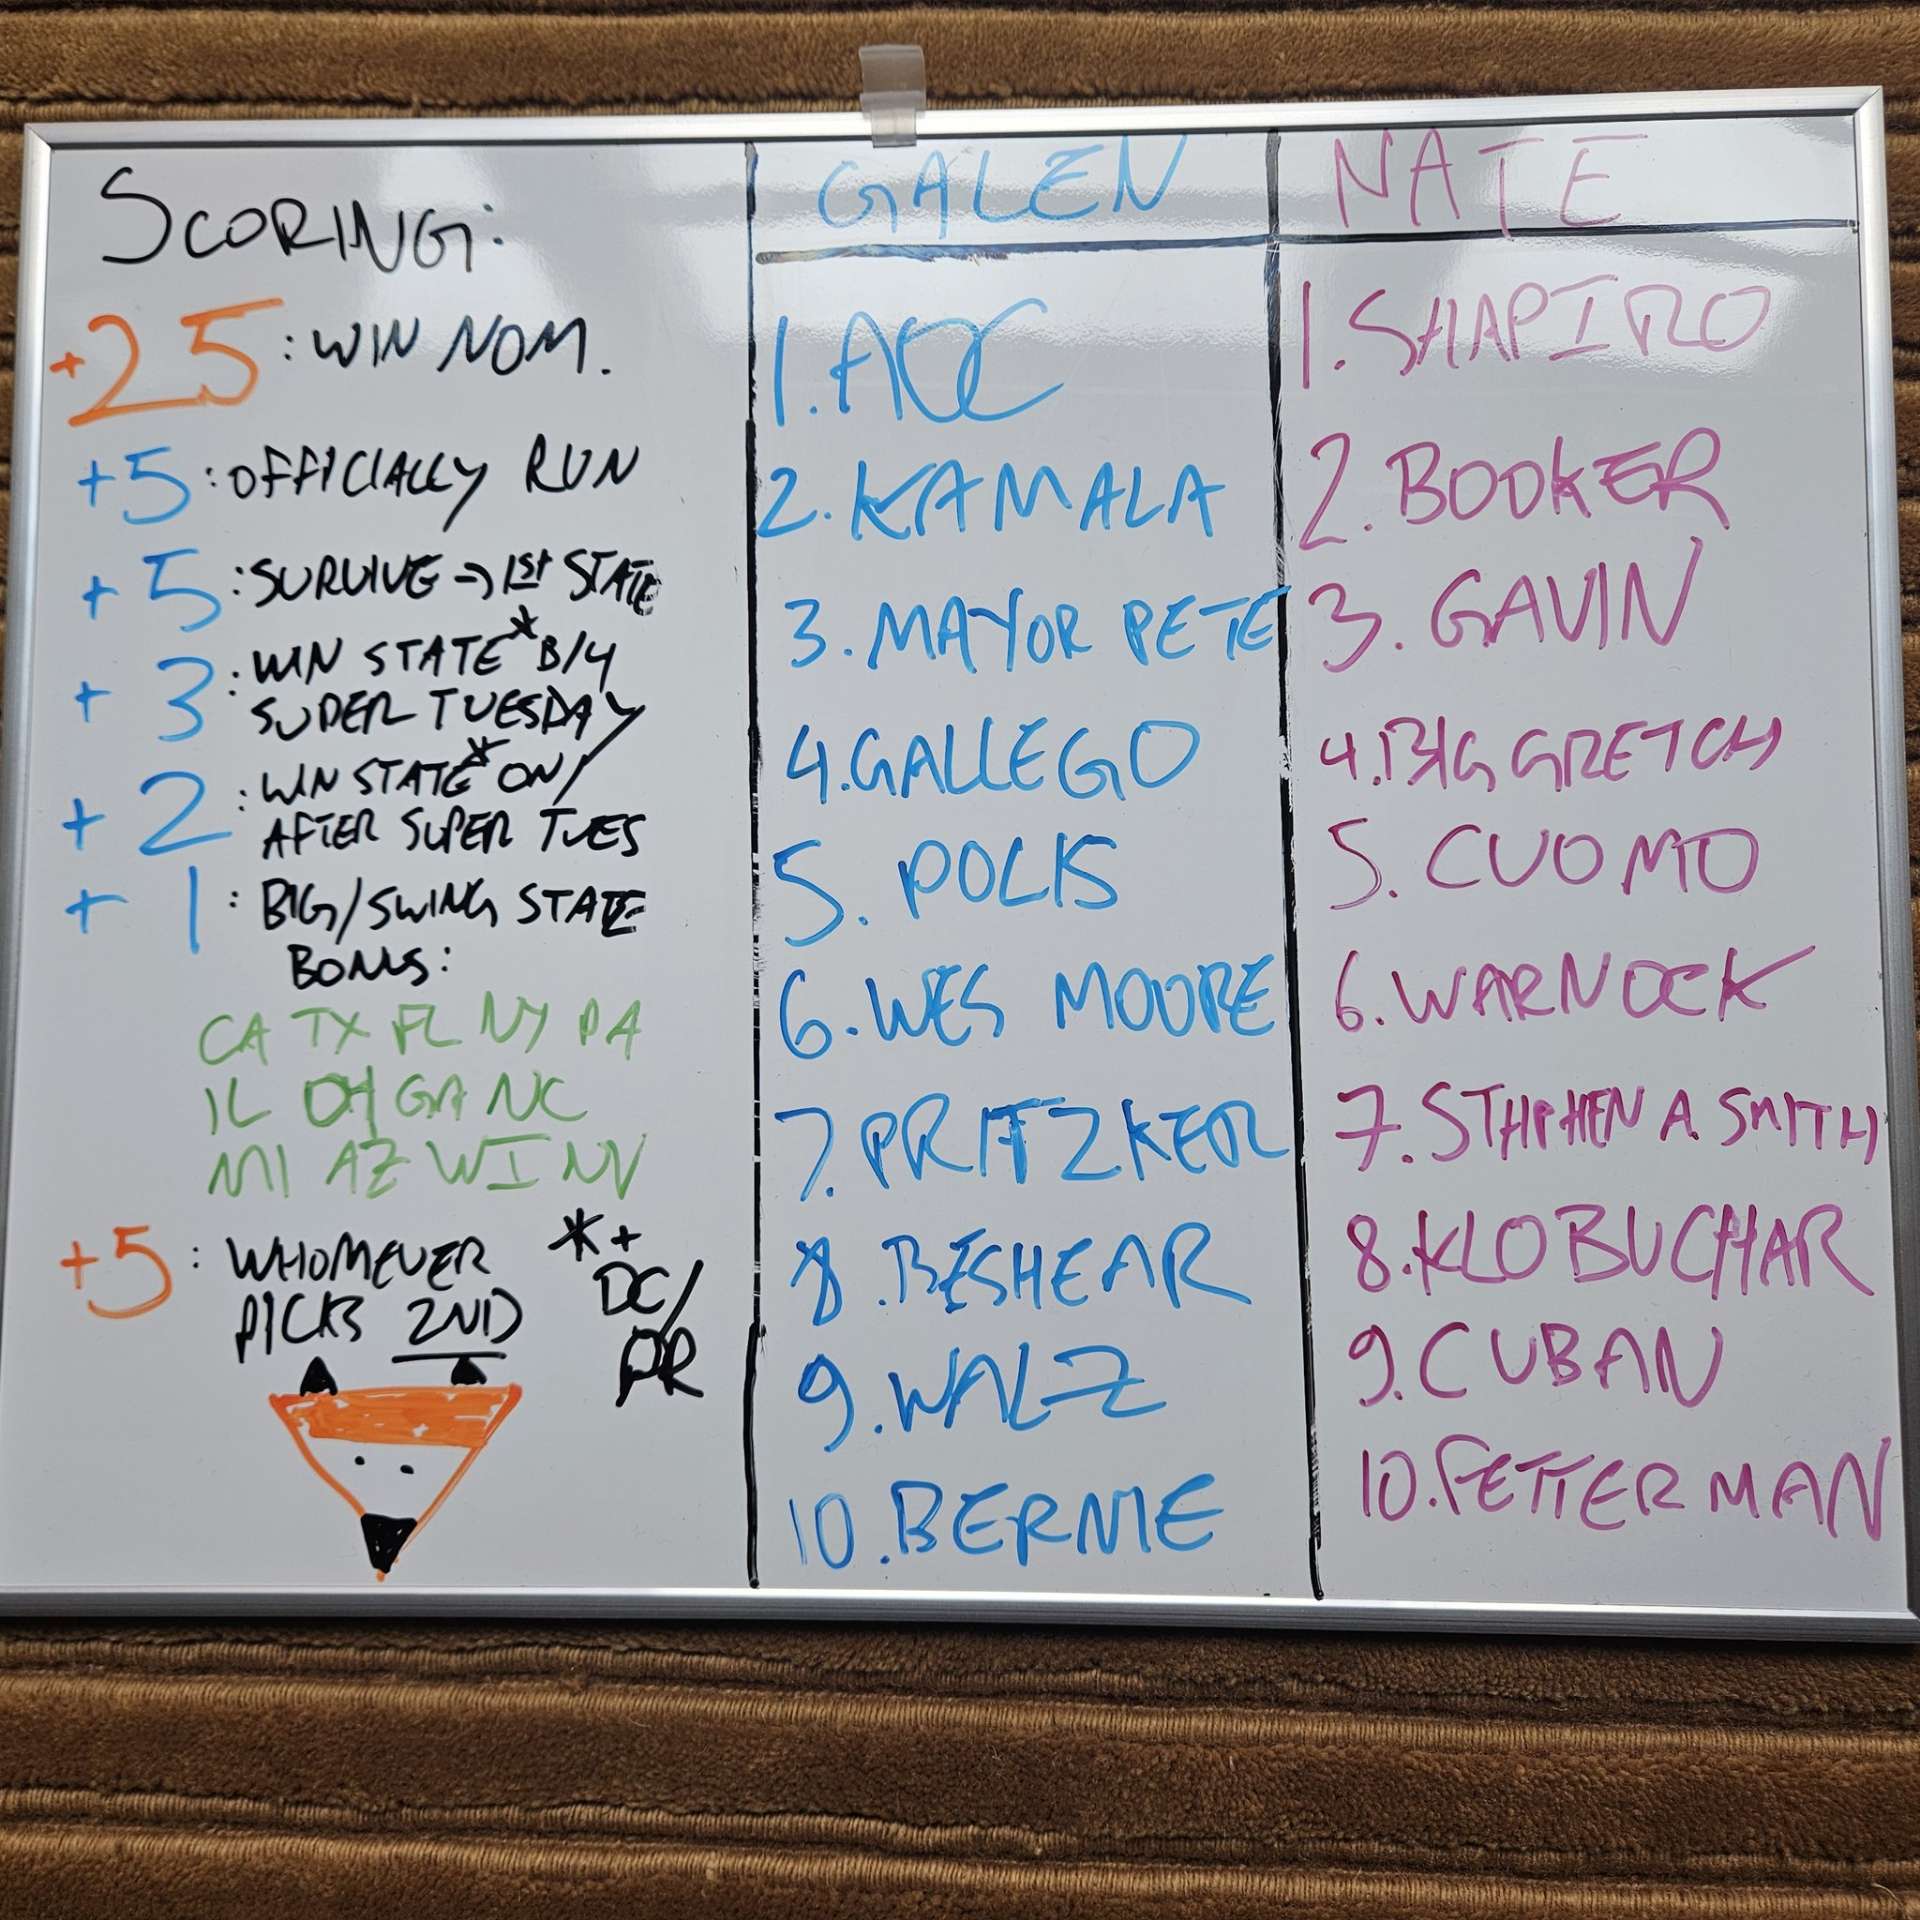 SCORING:
+25: WIN NOM.
+5: OFFICIALLY RUN
+5: SURVIVE → 1ST STATE
+3: WIN STATE* B/4
SUPER TUESDAY
+2: WIN STATE* ON/
AFTER SUPER TUES
+1: BIG/SWING STATE
BONUS:
CA TX FL NY PA
IL OH GA NC
MI AZ WI NV
+5: WHOMEVER
PICKS 2ND
*+
DC/
PR
GALEN
1. AOC
2. KAMALA
3. MAYOR PETE
4. GALLEGO
5. POLIS
6. WES MOORE
7. PRITZKER
8. BESHEAR
9. WALZ
10. BERNIE
NATE
1. SHAPIRO
2. BOOKER
3. GAVIN
4. BIG GRETCH
5. CUOMO
6. WARNOCK
7. STHPHEN A SMITH
8. KLOBUCHAR
9. CUBAN
10. FETTERMAN